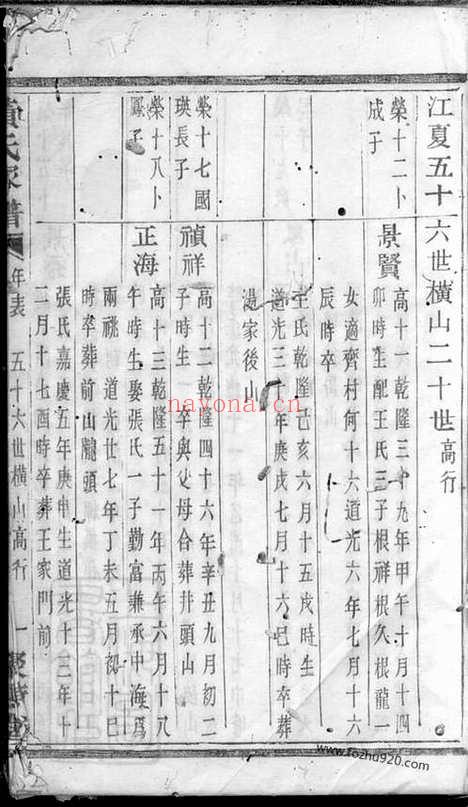 江夏五十六世橫山二十世高行
榮十二卜
成子
景賢
高十一乾隆三十九年甲午十月十四
卯時生配王氏三子根祥根久根龍一
女適齊村何十六道光六年七月十六
辰時卒
王氏乾隆己亥六月十五戌時生
道光三十年庚戌七月十六巳時卒葬
湯家後山
榮十七國
瑛長子
禎祥
高十二乾隆四十六年辛丑九月初二
子時生卒與父母合葬井頭山
榮十八卜
鳳子
正海
高十三乾隆五十一年丙午六月十八
午時生娶張氏一子勤富兼承中海爲
兩祧道光廿七年丁未五月初十巳
時卒葬前山隴頭
張氏嘉慶五年庚申生道光十三年十
二月十七酉時卒葬王家門前
氏家譜
年表 五十六世橫山高行 一
nayona.cn
www.fozhu920.com